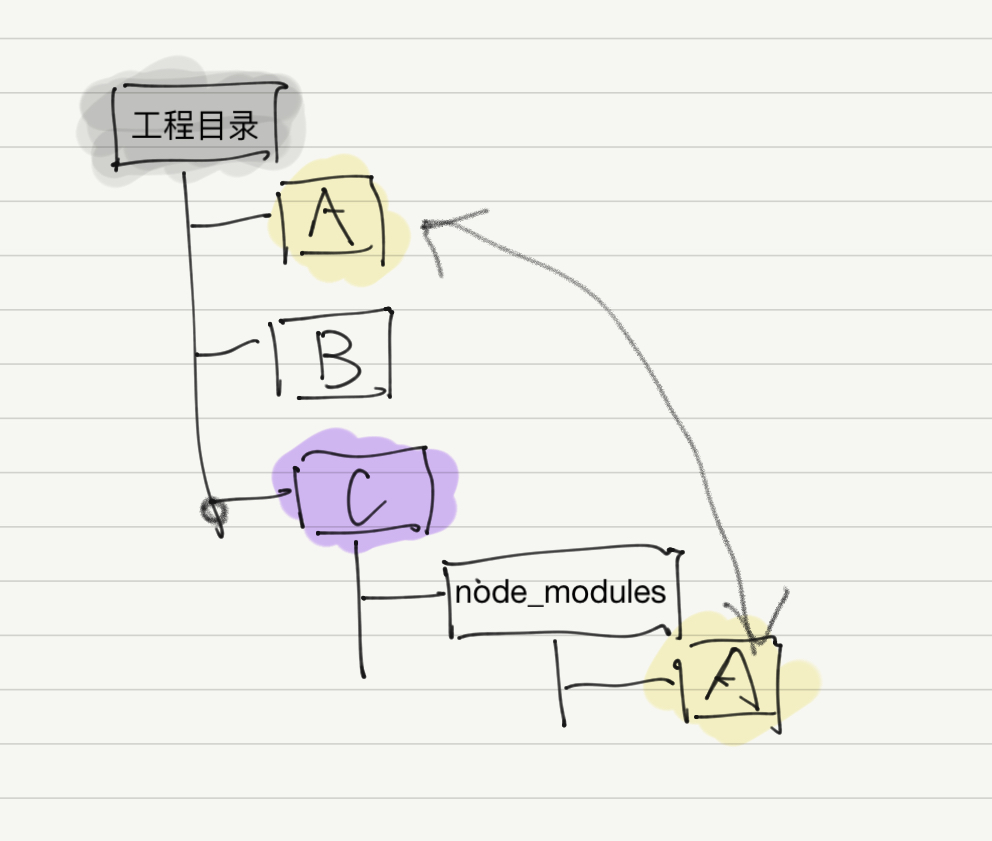 工程目录
A
B
C
node_modules
A